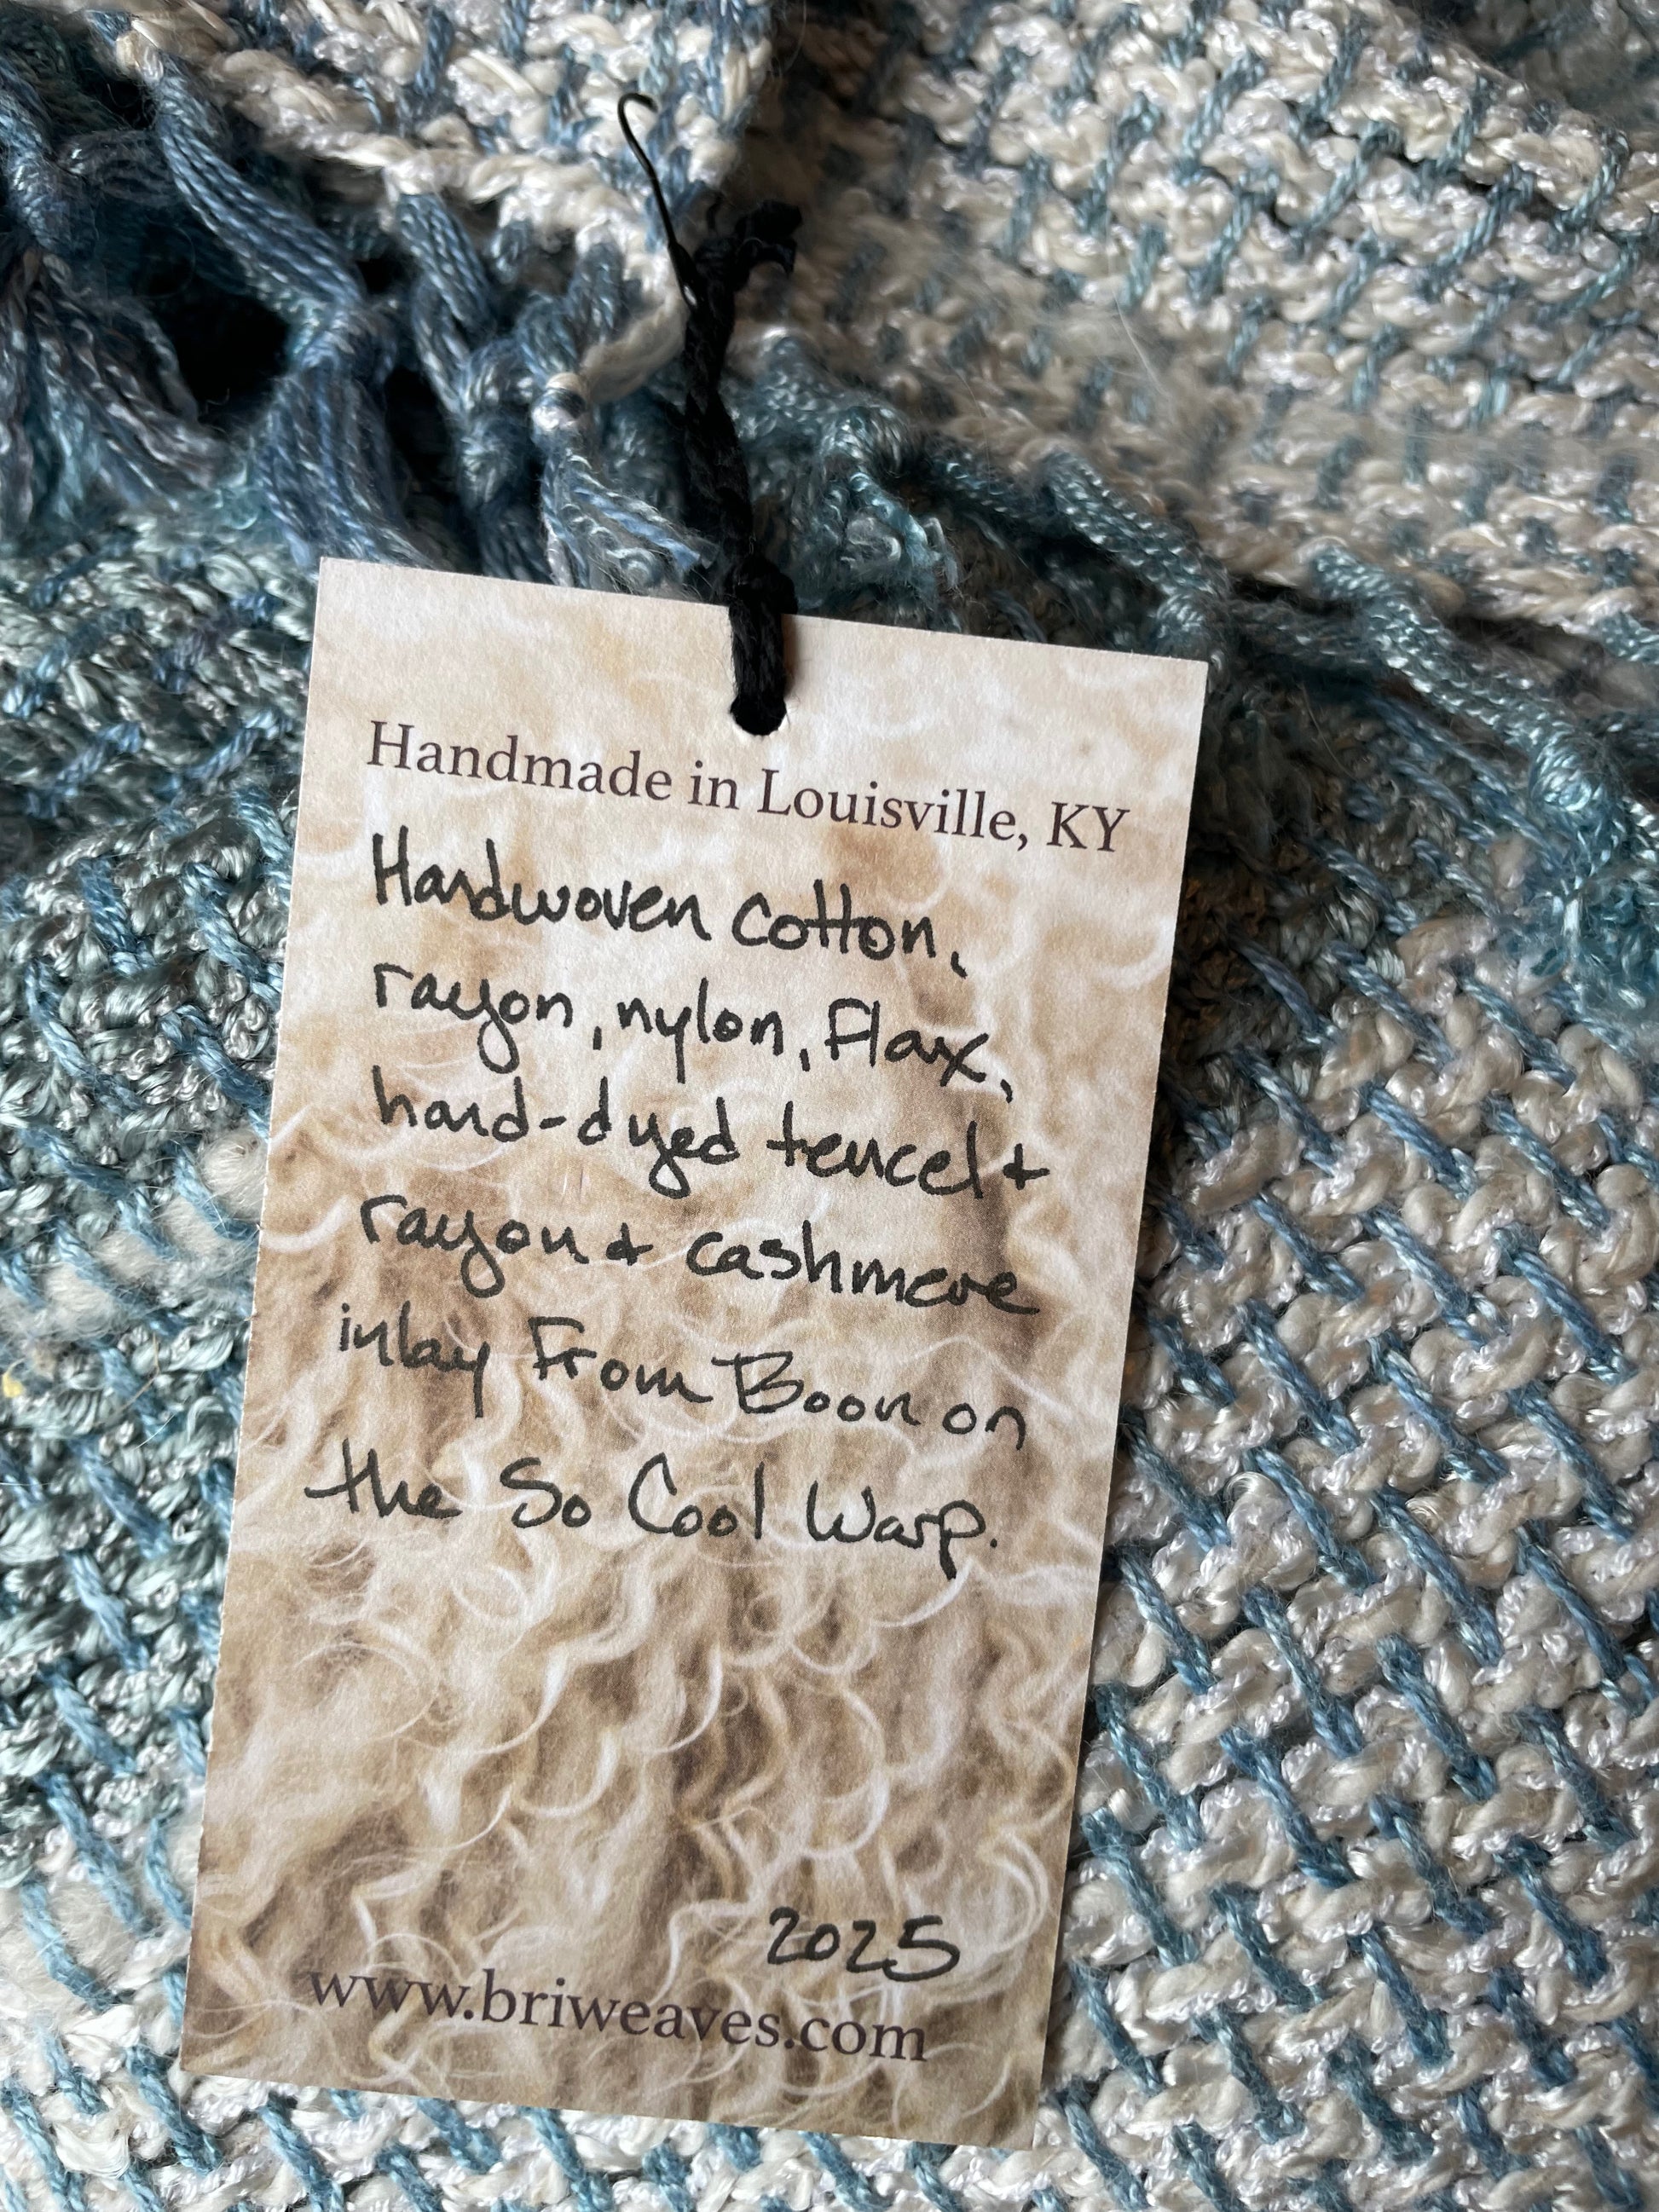 Handmade in Louisville, KY
Handwoven cotton,
rayon, nylon, flax,
hand-dyed tencel +
rayon + cashmere
inlay From Boon on
the So Cool Warp.
2025
www.briweaves.com